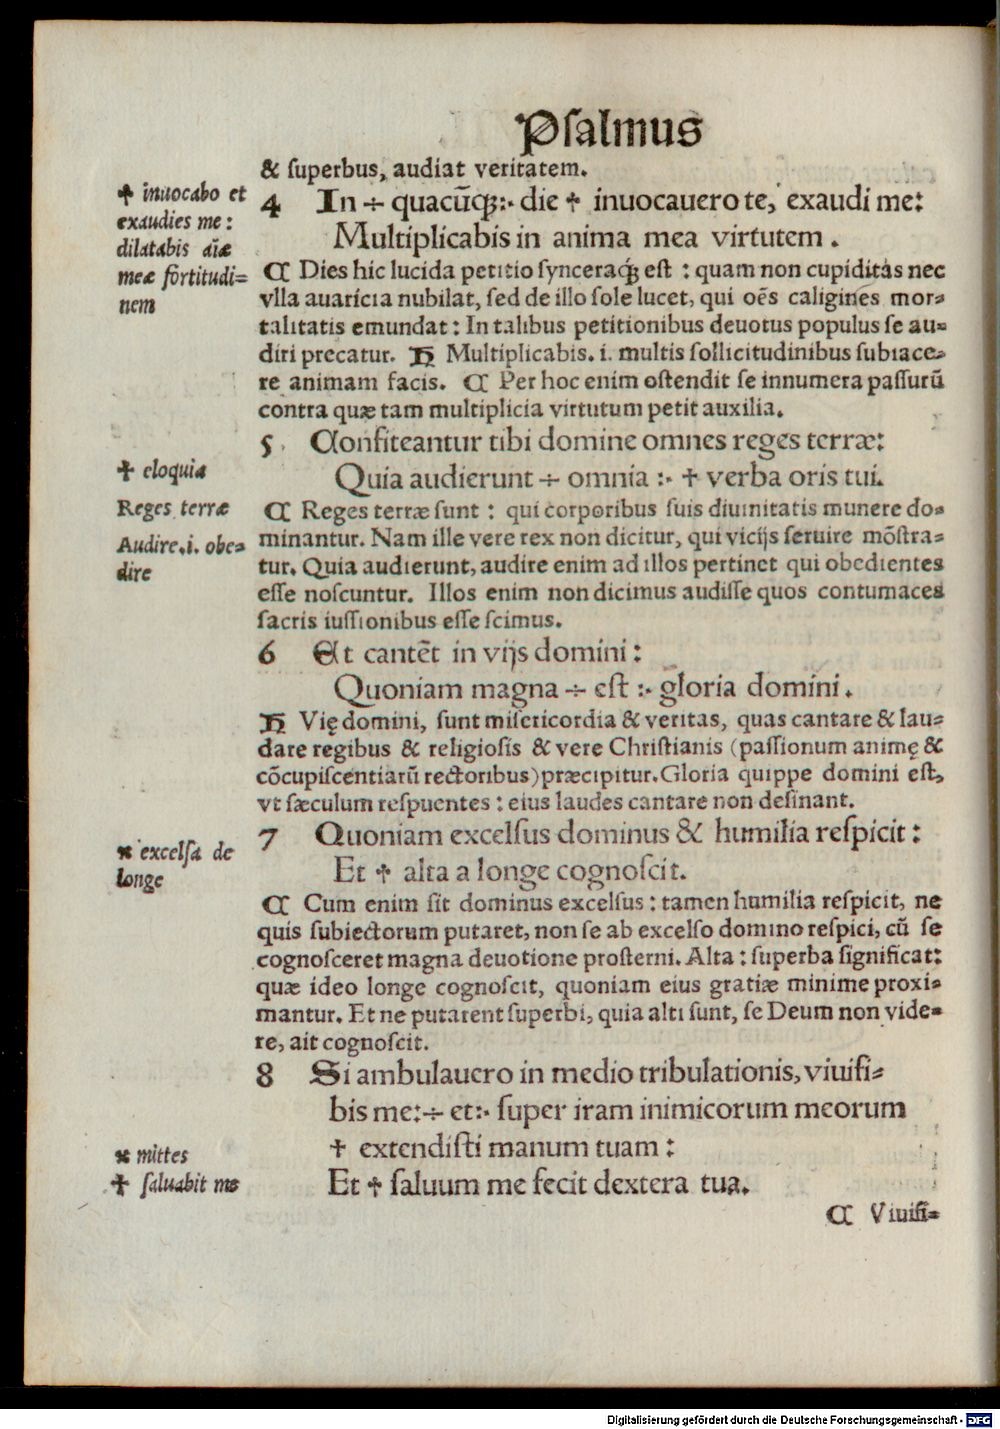 Psalmus
& ſuperbus, audiat veritatem.
4 In ÷ quacūqꝫ :· die ✝ inuocauero te, exaudi me:
Multiplicabis in anima mea virtutem.
C Dies hic lucida petitio ſynceraqꝫ eſt : quam non cupiditas nec
vlla auaricia nubilat, ſed de illo ſole lucet, qui oēs caligines mor⸗
talitatis emundat : In talibus petitionibus deuotus populus ſe au⸗
diri precatur. H Multiplicabis. i. multis ſollicitudinibus ſubiace⸗
re animam facis. C Per hoc enim oſtendit ſe innumera paſſurū
contra quæ tam multiplicia virtutum petit auxilia.
5 Confiteantur tibi domine omnes reges terræ:
Quia audierunt ÷ omnia :· ✝ verba oris tui.
C Reges terræ ſunt : qui corporibus ſuis diuinitatis munere do⸗
minantur. Nam ille vere rex non dicitur, qui vicijs ſeruire mōſtra⸗
tur. Quia audierunt, audire enim ad illos pertinet qui obedientes
eſſe noſcuntur. Illos enim non dicimus audiſſe quos contumaces
ſacris iuſſionibus eſſe ſcimus.
6 Et cantēt in vijs domini :
Quoniam magna ÷ eſt :· gloria domini.
H Vię domini, ſunt miſericordia & veritas, quas cantare & lau⸗
dare regibus & religioſis & vere Chriſtianis (paſſionum animę &
cōcupiſcentiarū rectoribus) præcipitur. Gloria quippe domini eſt,
vt ſæculum reſpuentes : eius laudes cantare non deſinant.
7 Quoniam excelſus dominus & humilia reſpicit :
Et ✝ alta a longe cognoſcit.
C Cum enim ſit dominus excelſus : tamen humilia reſpicit, ne
quis ſubiectorum putaret, non ſe ab excelſo domino reſpici, cū ſe
cognoſceret magna deuotione proſterni. Alta : ſuperba ſignificat:
quæ ideo longe cognoſcit, quoniam eius gratiæ minime proxi⸗
mantur. Et ne putarent ſuperbi, quia alti ſunt, ſe Deum non vide⸗
re, ait cognoſcit.
8 Si ambulauero in medio tribulationis, viuifi⸗
bis me: ÷ et :· ſuper iram inimicorum meorum
✝ extendiſti manum tuam :
Et ✝ ſaluum me fecit dextera tua.
C Viuifi⸗
✝ inuocabo et
exaudies me :
dilatabis aīæ
meæ fortitudi⸗
nem
✝ eloquia
Reges terræ
Audire. i. obe⸗
dire
✝ excelſa de
longe
✝ mittes
✝ ſaluabit me
Digitalisierung gefördert durch die Deutsche Forschungsgemeinschaft - DFG